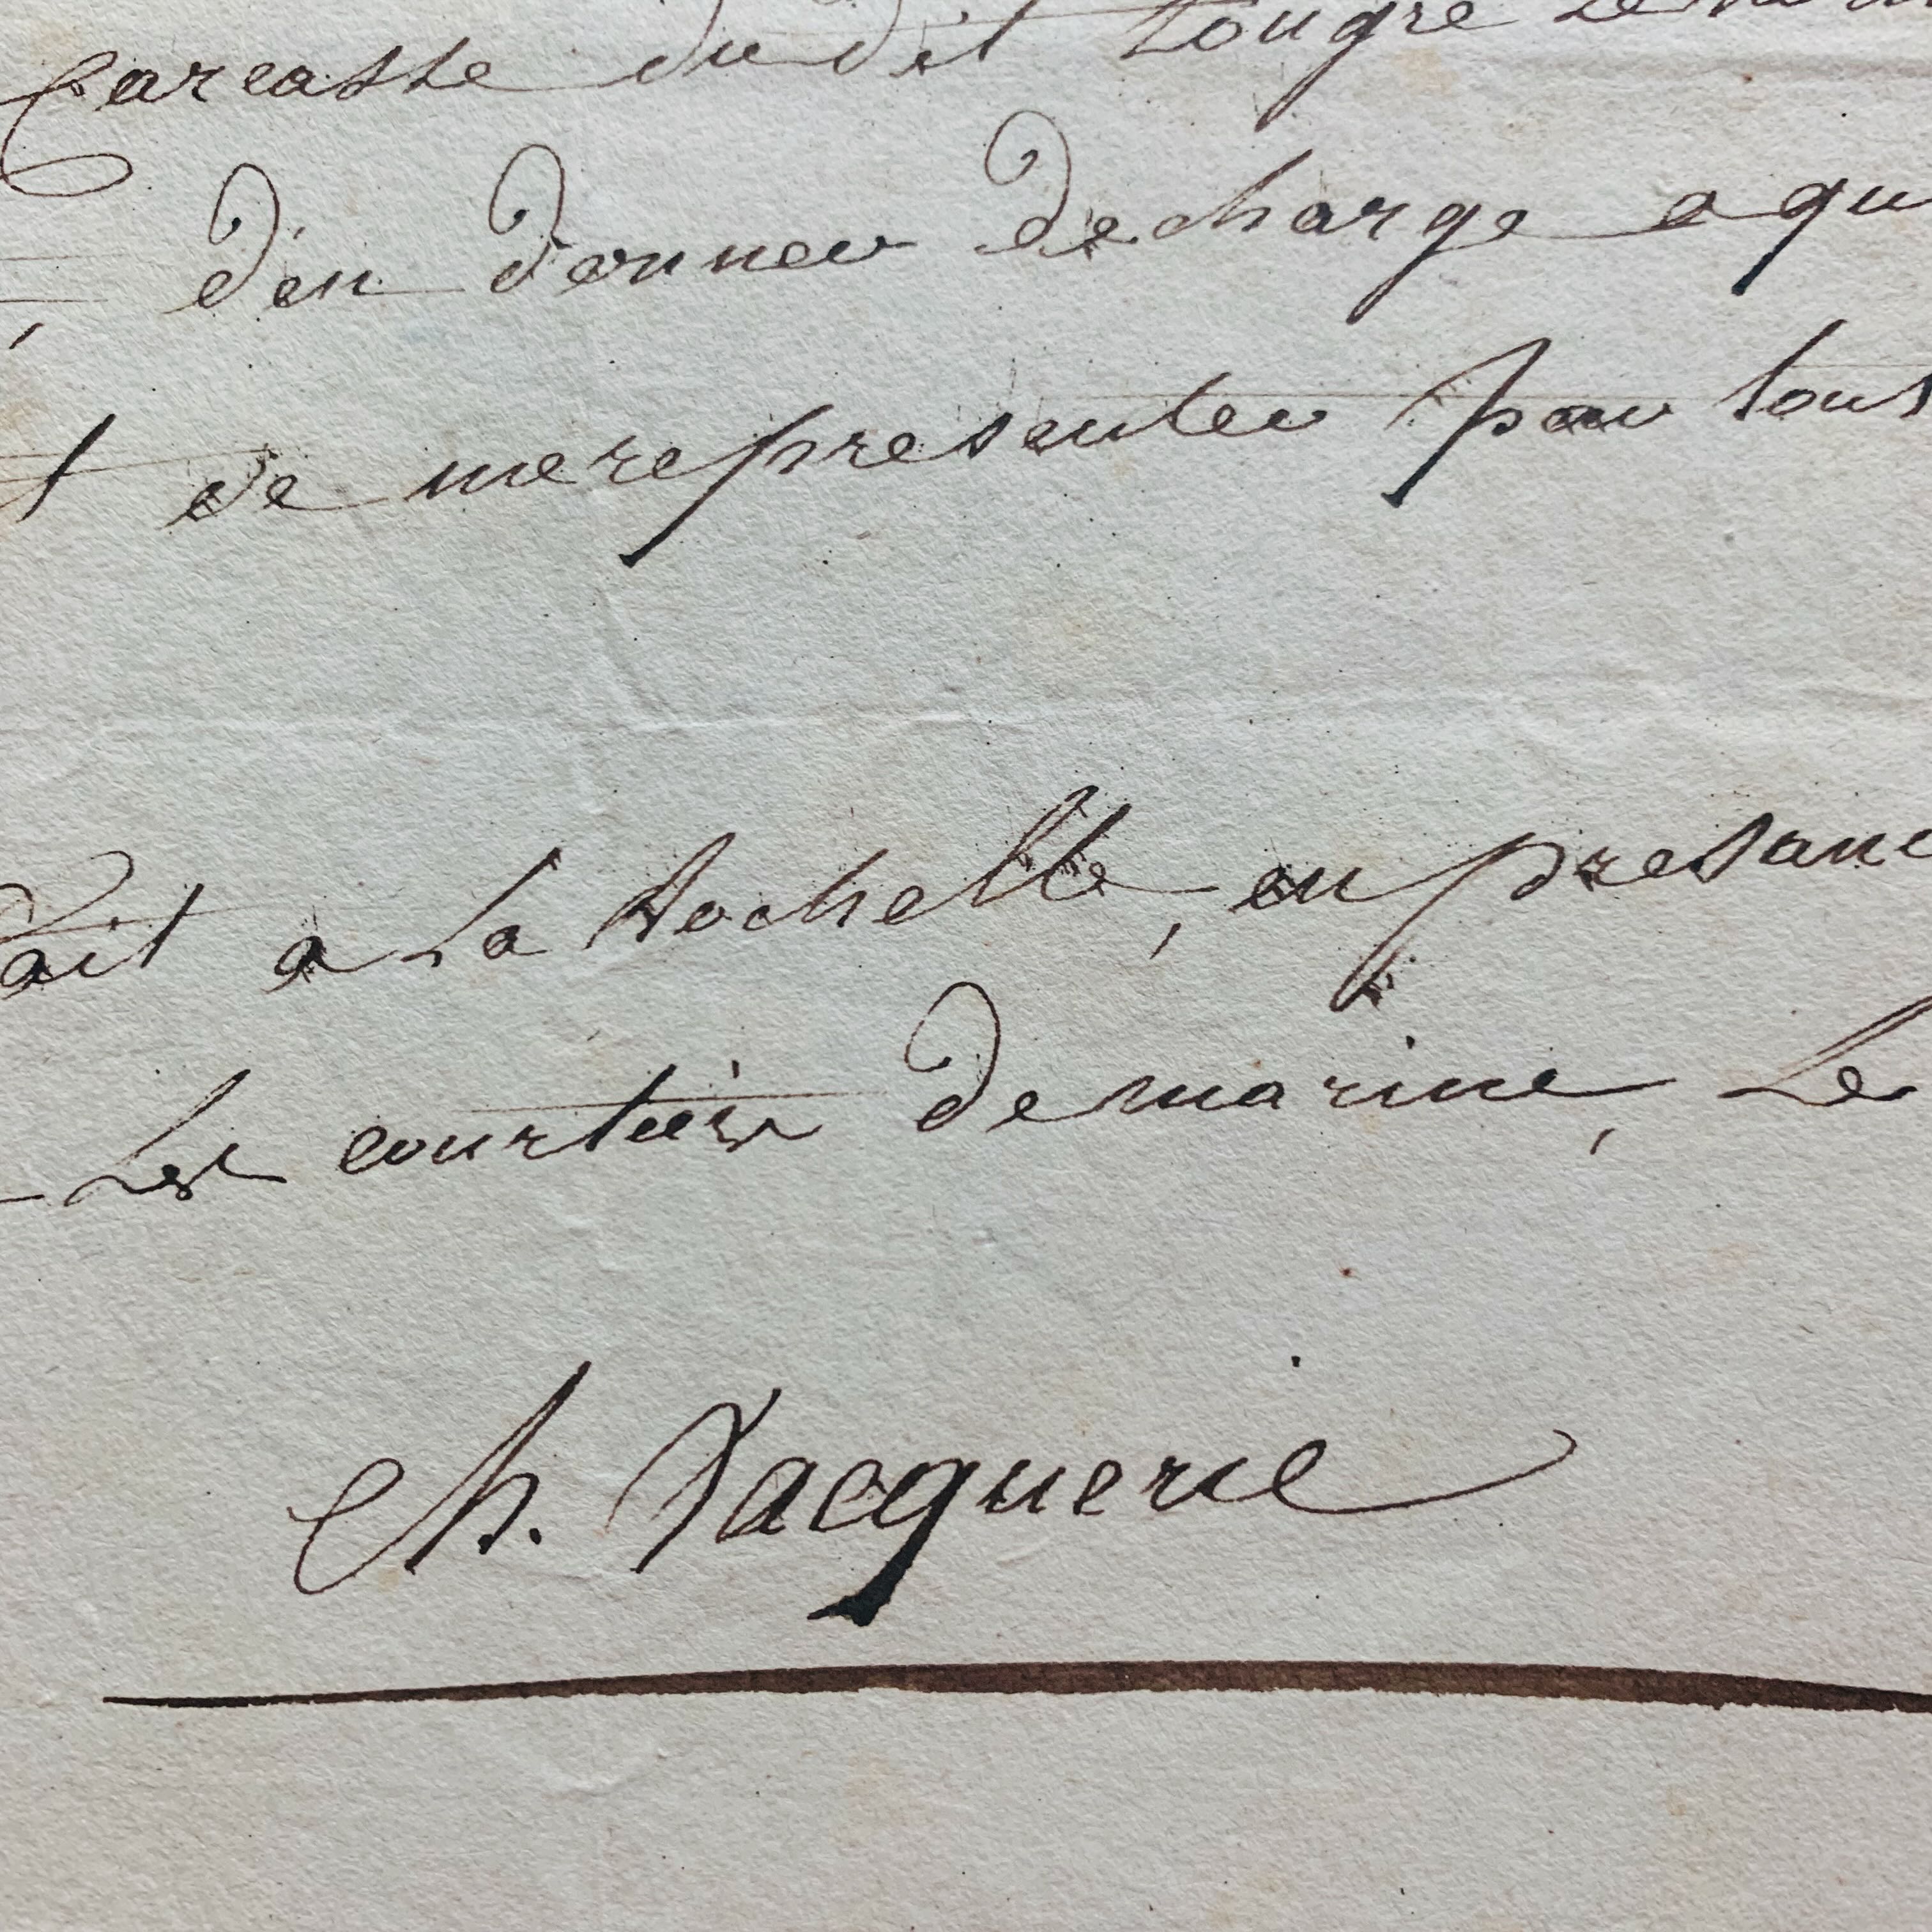 Carcasse du dit Lougre
d'en donner decharge a qu
t de me representer par tous
fait a La Rochelle, en presanc
Les courtiers de marine, Le
Ch. Vacquerie